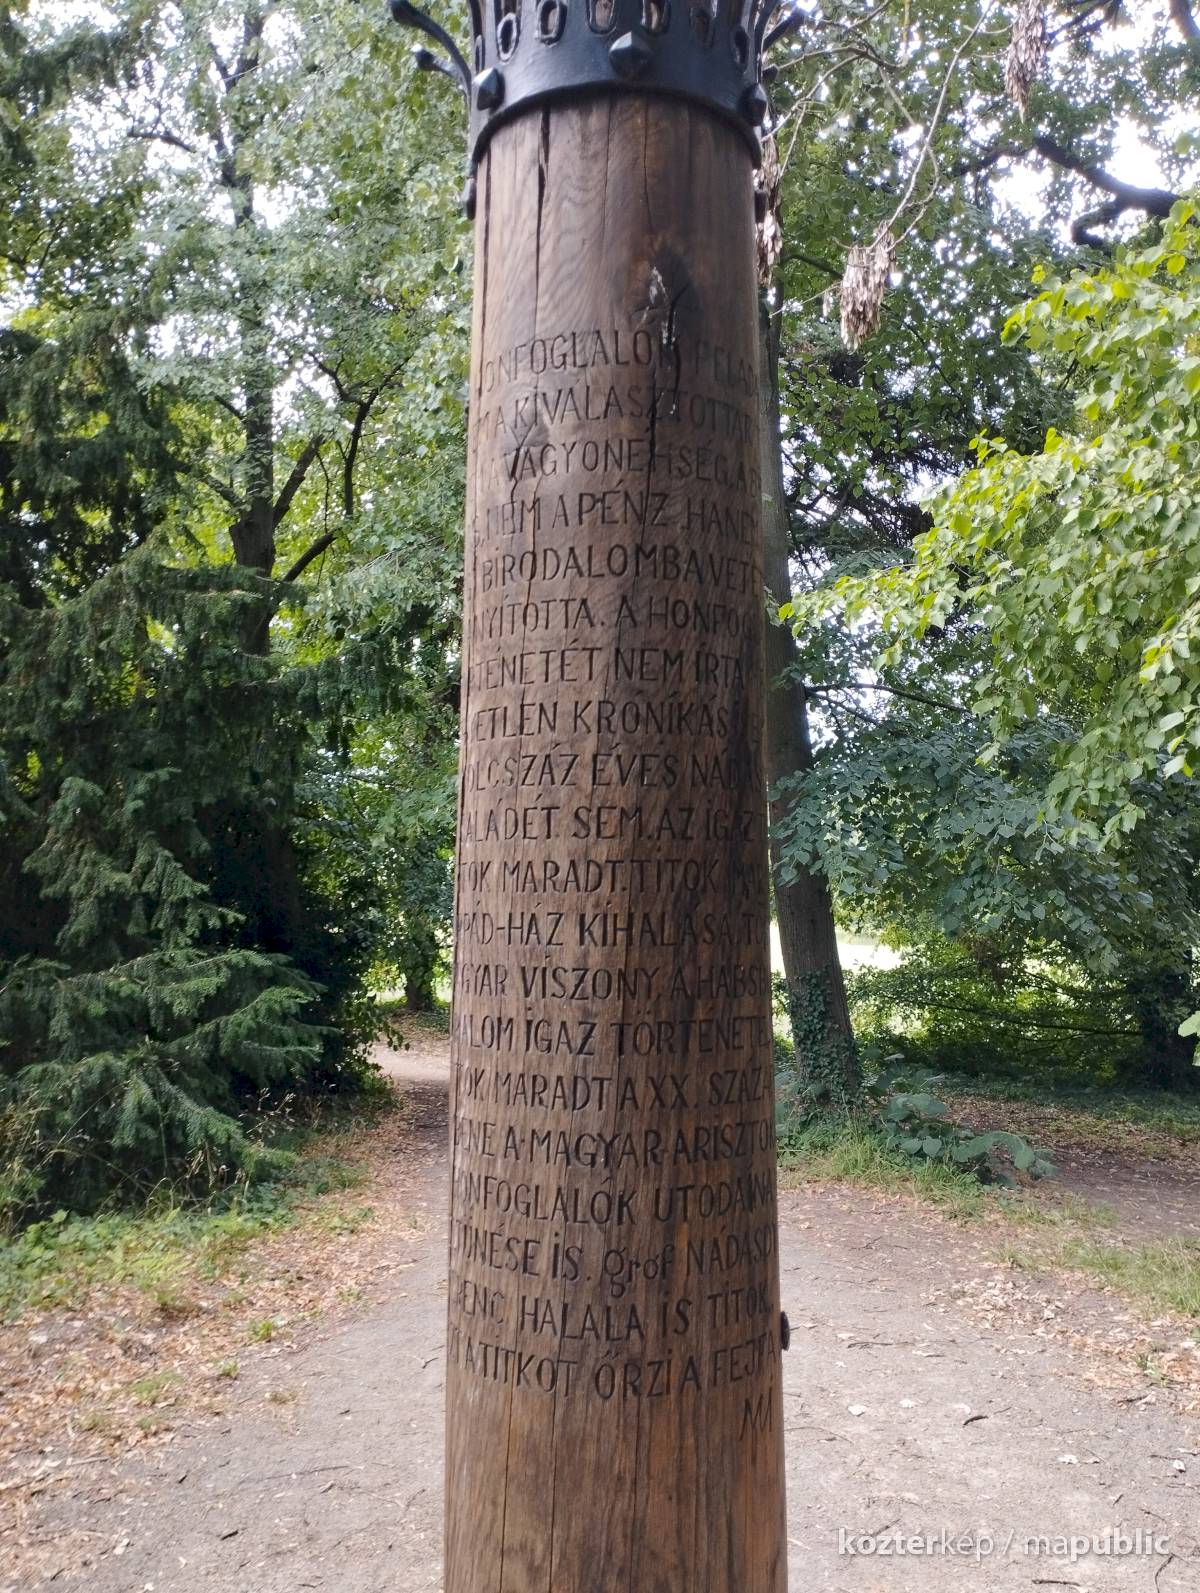 ONFOGLALÓK
A KÍVÁLASZTOTTAK
A VAGYONÉHSÉG, A
NEM A PÉNZ HAN
BÍRODALOMBAVET
NYÍTOTTA. A HONFOG
TÉNETÉT NEM ÍRTA
ETLEN KRÓNÍKÁS
OLCSZÁZ ÉVES NÁDAS
ALÁDÉT SEM. AZ ÍGAZ
TOK MARADT. TÍTOK MA
PÁD-HÁZ KÍHALÁSA. TÖ
GYAR VÍSZONY, A HABSB
ALOM ÍGAZ TÖRTÉNETE
TOK MARADT A XX. SZÁZA
BENE A MAGYAR ARISZTOK
ONFOGLALÓK UTÓDAÍNAK
TŰNÉSE ÍS. gróf NÁDASDY
RENC HALÁLA ÍS TÍTOK.
T A TÍTKOT ŐRZÍ A FEJFA
köztérkép / mapublic